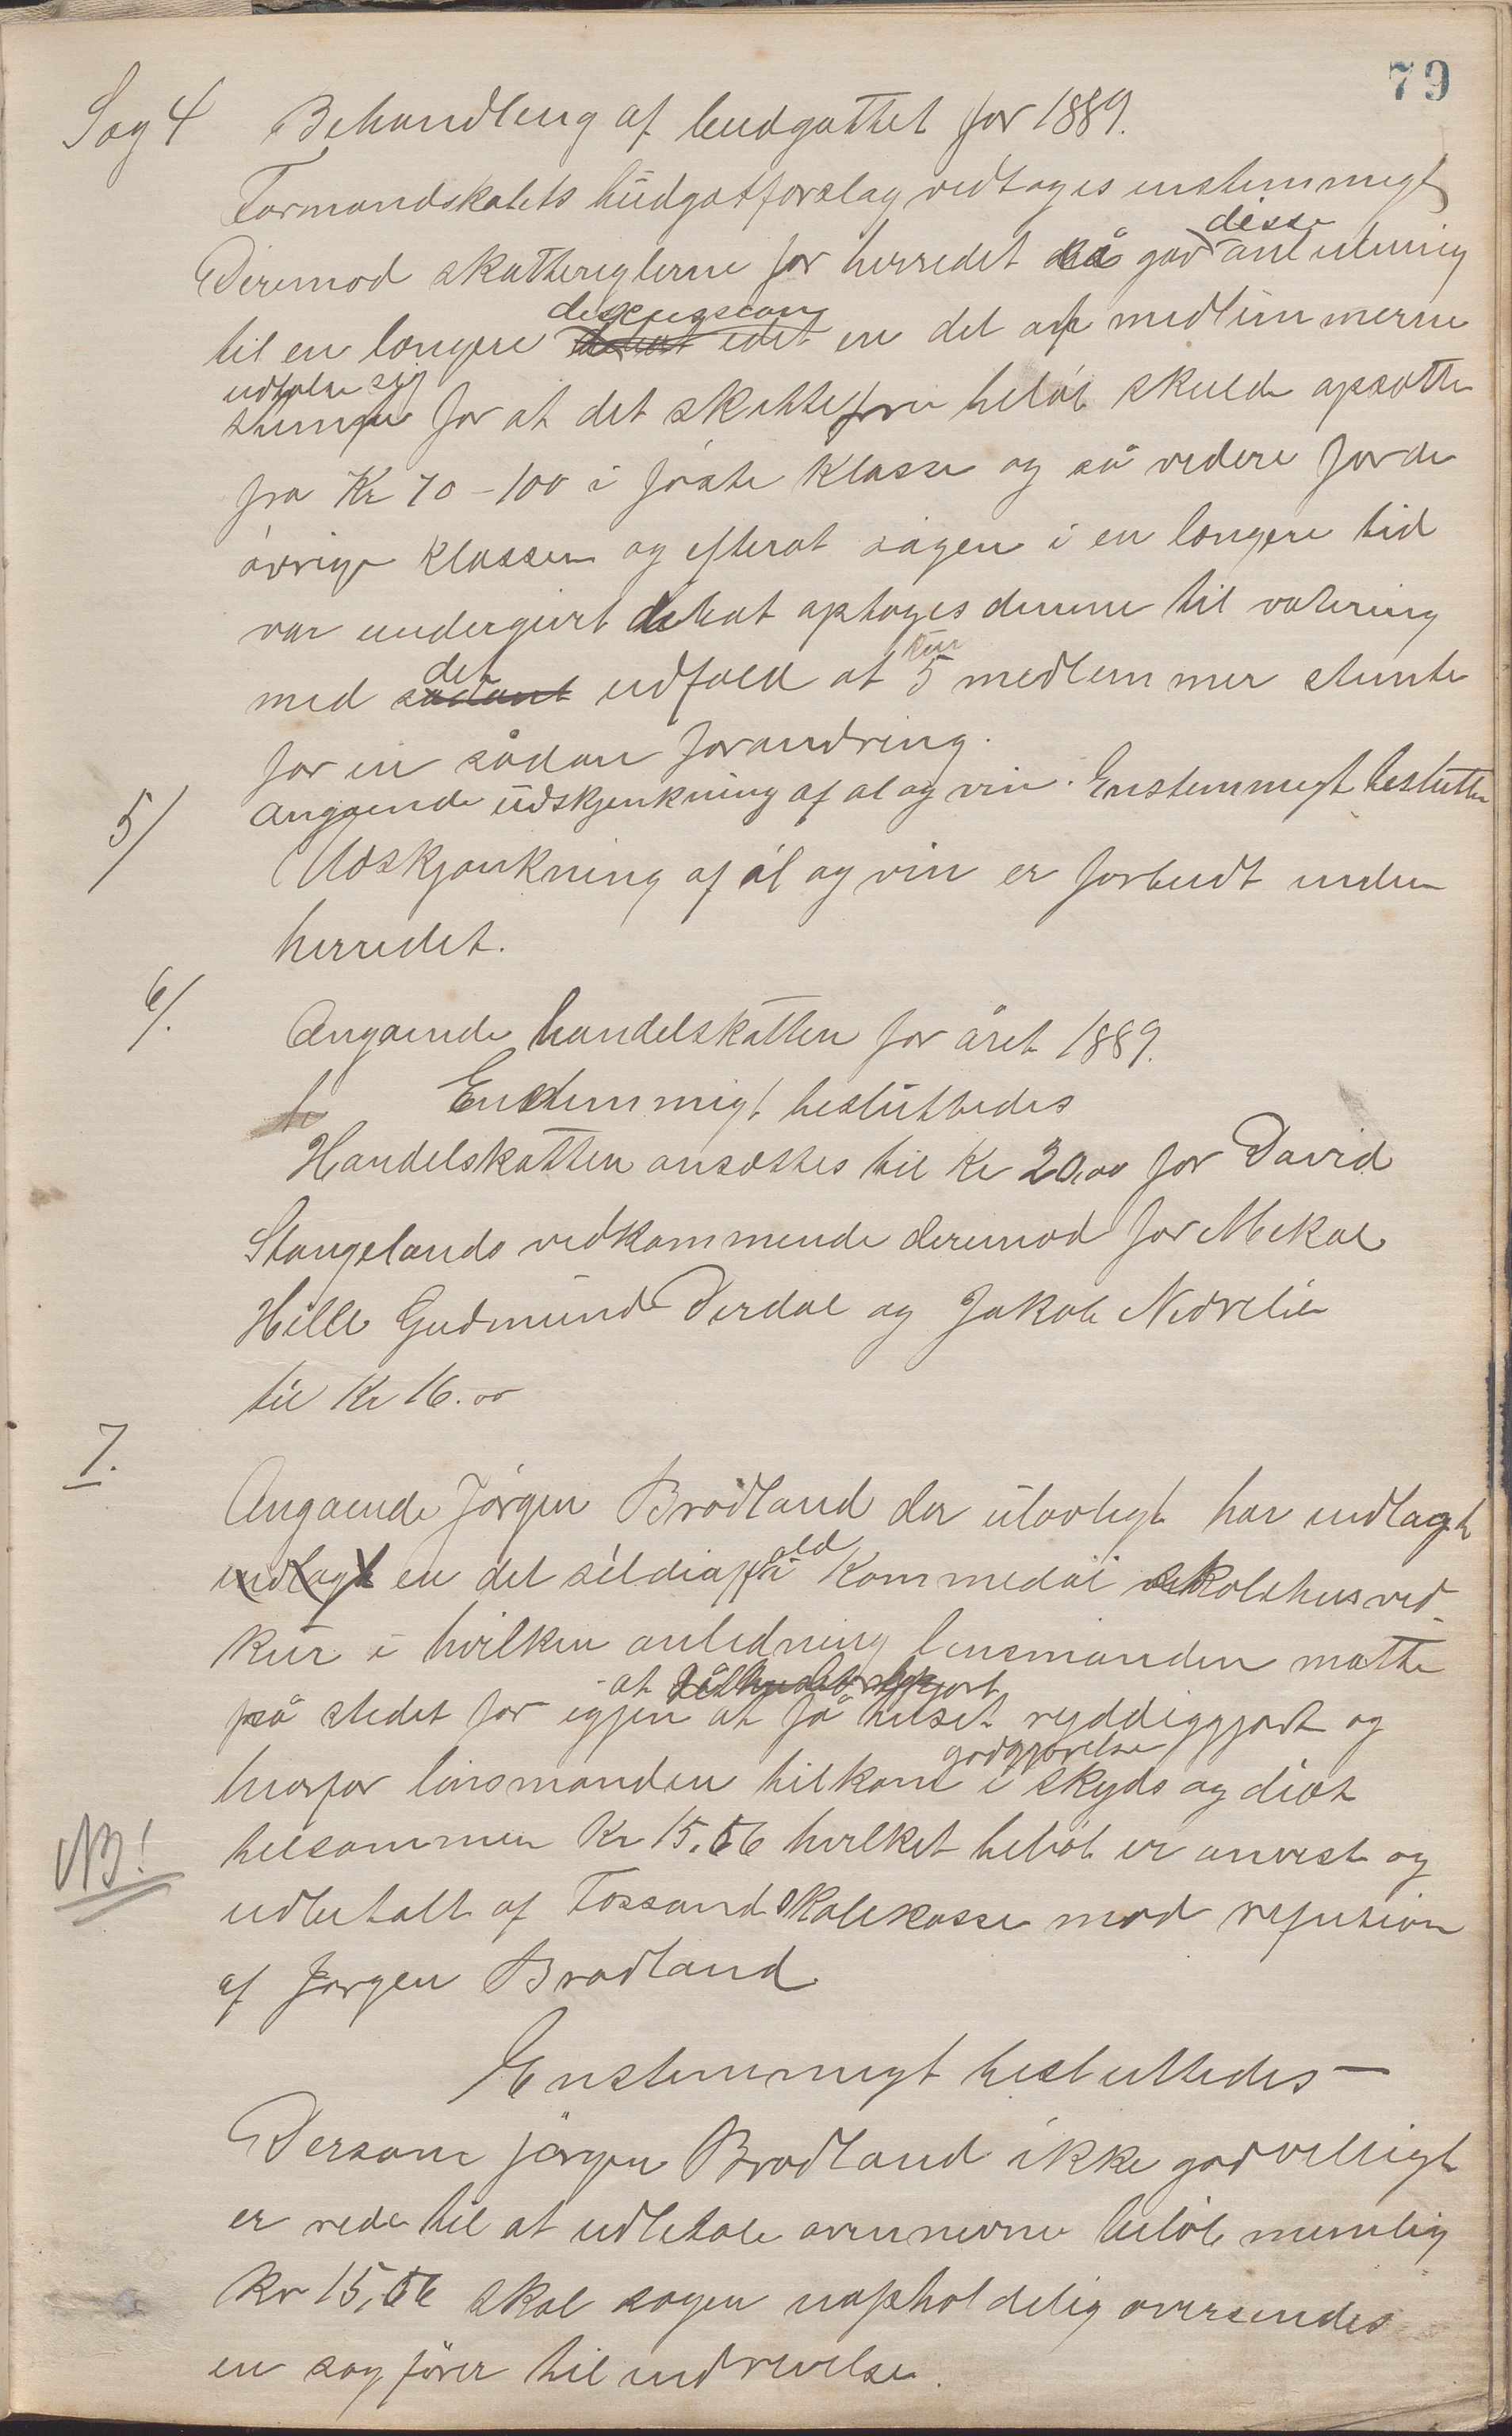 79
Sag 4 Behandling af budgættet for 1889.
Formandskabets budgætforslag vedtages enstemmigt
Derimod skattereglerne for herredet så gav disse anledning
til en længere discussion idet en del af medlemmerne
udtalte sig for at det skattefrie beløb skulde opsættes
fra Kr 70-100 i første klasse og så videre for de
øvrige klasser og efterat sagen i en længere tid
var undergivet debat optoges denne til votering
med det udfald at kun 5 medlemmer stemte
for en sådan forandring.
5/ angaende udskjenkning af øl og vin. Enstemmigt besluttes
Udskjænkning af øl og vin er forbudt inden
herredet.
6/. Angaende handelskatten for året 1889.
Enstemmigt besluttedes
Handelskatten ansættes til Kr 20,00 for David
Stangelands vedkommende derimod for Mikal
Hille Gudmund Dirdal og Jakob Nedrelie
til Kr 16.00
7. Angaende Jørgen Brødland der ulovligt har indlagt
indlagt en del sild i på Kommedal skolehus ved
kur i hvilken anledning lensmanden måtte
på stedet for igjen at få huset ryddiggjort og
hvorfor linsmanden tilkom godgjørelse i skyds og diæt
tilsammen Kr 15.56 hvilket beløb er anvist og
udbetalt af Fossand skolekasse mod refusion
af Jørgen Brødland
NB!
Enstemmigt besluttedes —
Dersom Jørgen Brødland ikke godvilligt
er rede til at udbetale ovennævne beløb nemlig
Kr 15,56 skal sagen uopholdelig oversendes
en sagfører til inddrivelse.